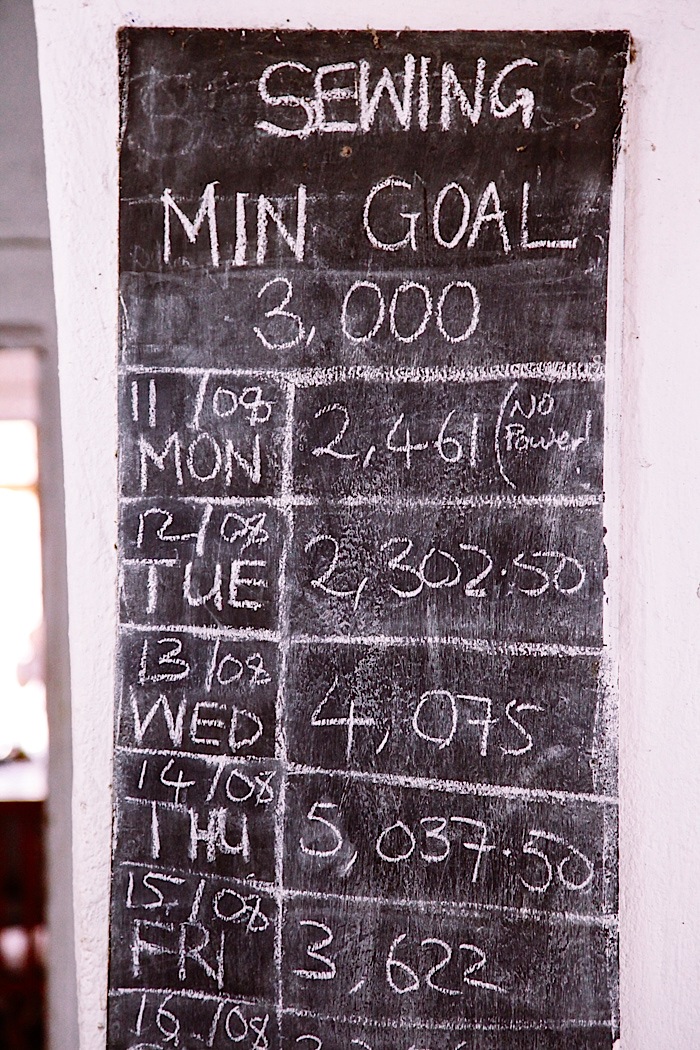 SEWING
MIN GOAL
3,000
11/08 MON 2,461 (No Power!
12/08 TUE 2,302.50
13/08 WED 4,075
14/08 THU 5,037.50
15/08 FRI 3,622
16/08